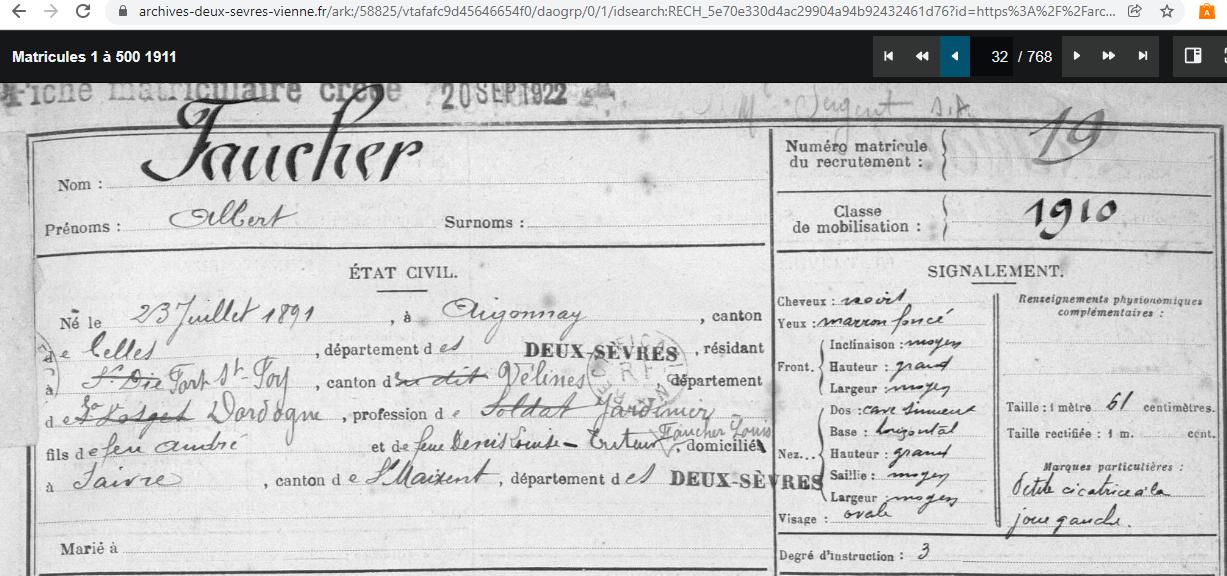 archives-deux-sevres-vienne.fr/ark:/58825/vtafafc9d45646654f0/daogrp/0/1/idsearch:RECH_5e70e330d4ac29904a94b92432461d76?id=https%3A%2F%2Farc...
Matricules 1 à 500 1911
32 / 768
Fiche matriculaire créée 20 SEP 1922
Sergent S.A
Nom : Faucher
Prénoms : Albert Surnoms :
Numéro matricule du recrutement : 19
Classe de mobilisation : 1910
ÉTAT CIVIL.
Né le 23 Juillet 1891, à Aigonnay, canton
de Celles, département des DEUX-SÈVRES, résidant
à St Die Port St Foy, canton du dit Vélines département
de Dordogne, profession de Soldat Jardinier
fils de feu André et de feue Denis Louise - Tuteur Faucher Louis, domiciliés
à Saivre, canton de St Maixent, département des DEUX-SÈVRES
Marié à
SIGNALEMENT.
Cheveux : noirs
Yeux : marron foncé
Front. Inclinaison : moyen
Hauteur : grand
Largeur : moyen
Nez... Dos : cave sinueux
Base : horizontal
Hauteur : grand
Saillie : moyen
Largeur : moyen
Visage : ovale
Renseignements physionomiques complémentaires :
Taille : 1 mètre 61 centimètres.
Taille rectifiée : 1 m. cent.
Marques particulières :
Petite cicatrice à la
joue gauche.
Degré d'instruction : 3